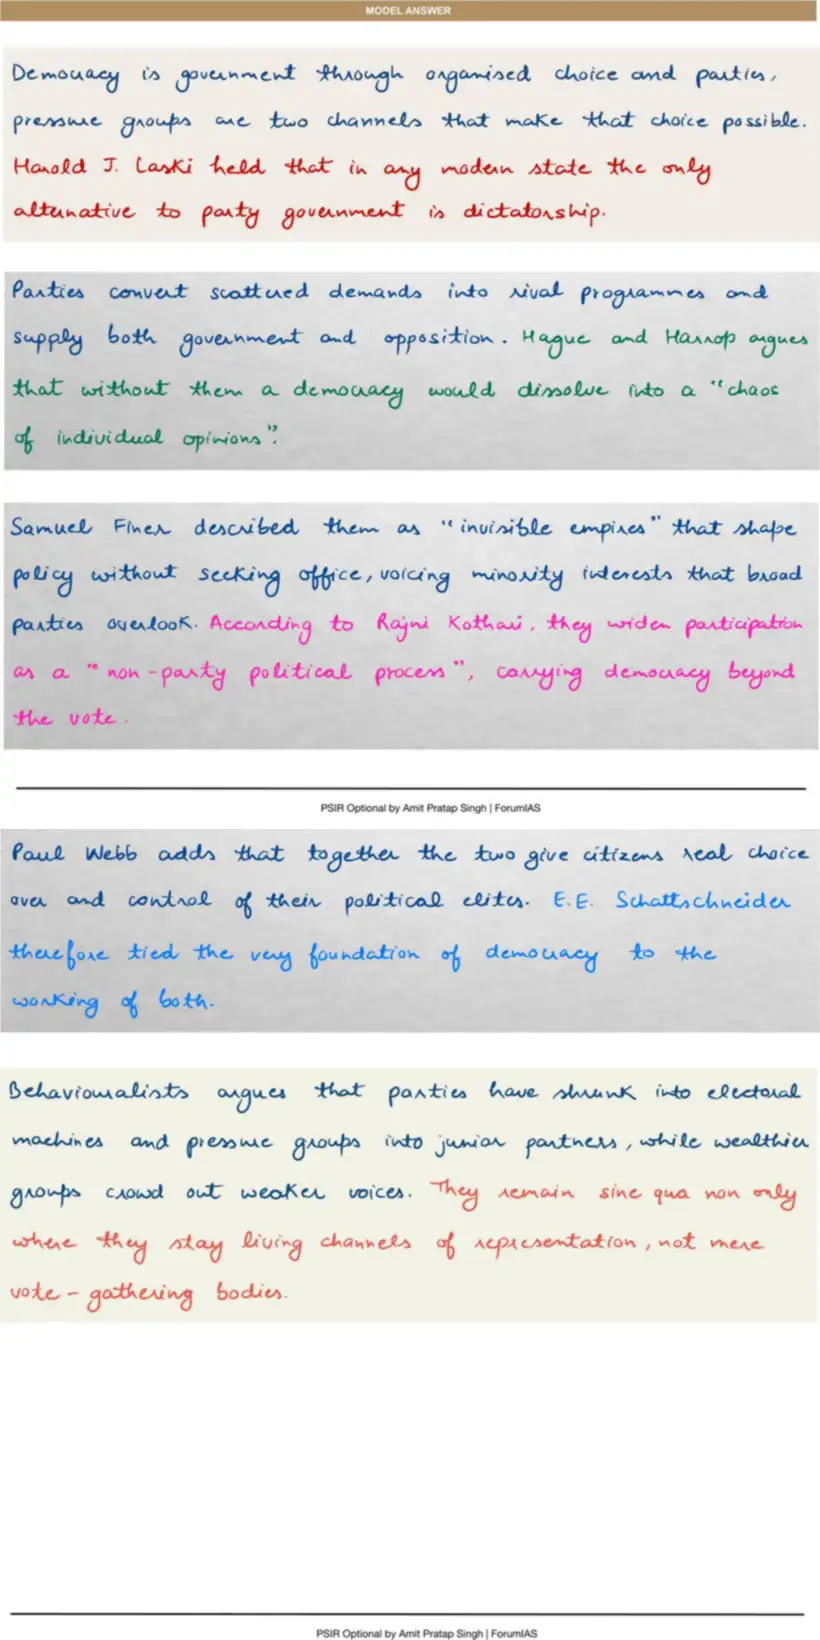 MODEL ANSWER
Democracy is government through organised choice and parties,
pressure groups are two channels that make that choice possible.
Harold J. Laski held that in any modern state the only
alternative to party government is dictatorship.
Parties convert scattered demands into rival programmes and
supply both government and opposition. Hague and Harrop argues
that without them a democracy would dissolve into a "chaos
of individual opinions".
Samuel Finer described them as "invisible empires" that shape
policy without seeking office, voicing minority interests that broad
parties overlook. According to Rajni Kothari, they widen participation
as a "non-party political process", carrying democracy beyond
the vote.
PSIR Optional by Amit Pratap Singh | ForumIAS
Paul Webb adds that together the two give citizens real choice
over and control of their political elites. E.E. Schattschneider
therefore tied the very foundation of democracy to the
working of both.
Behaviouralists argues that parties have shrunk into electoral
machines and pressure groups into junior partners, while wealthier
groups crowd out weaker voices. They remain sine qua non only
where they stay living channels of representation, not mere
vote-gathering bodies.
PSIR Optional by Amit Pratap Singh | ForumIAS